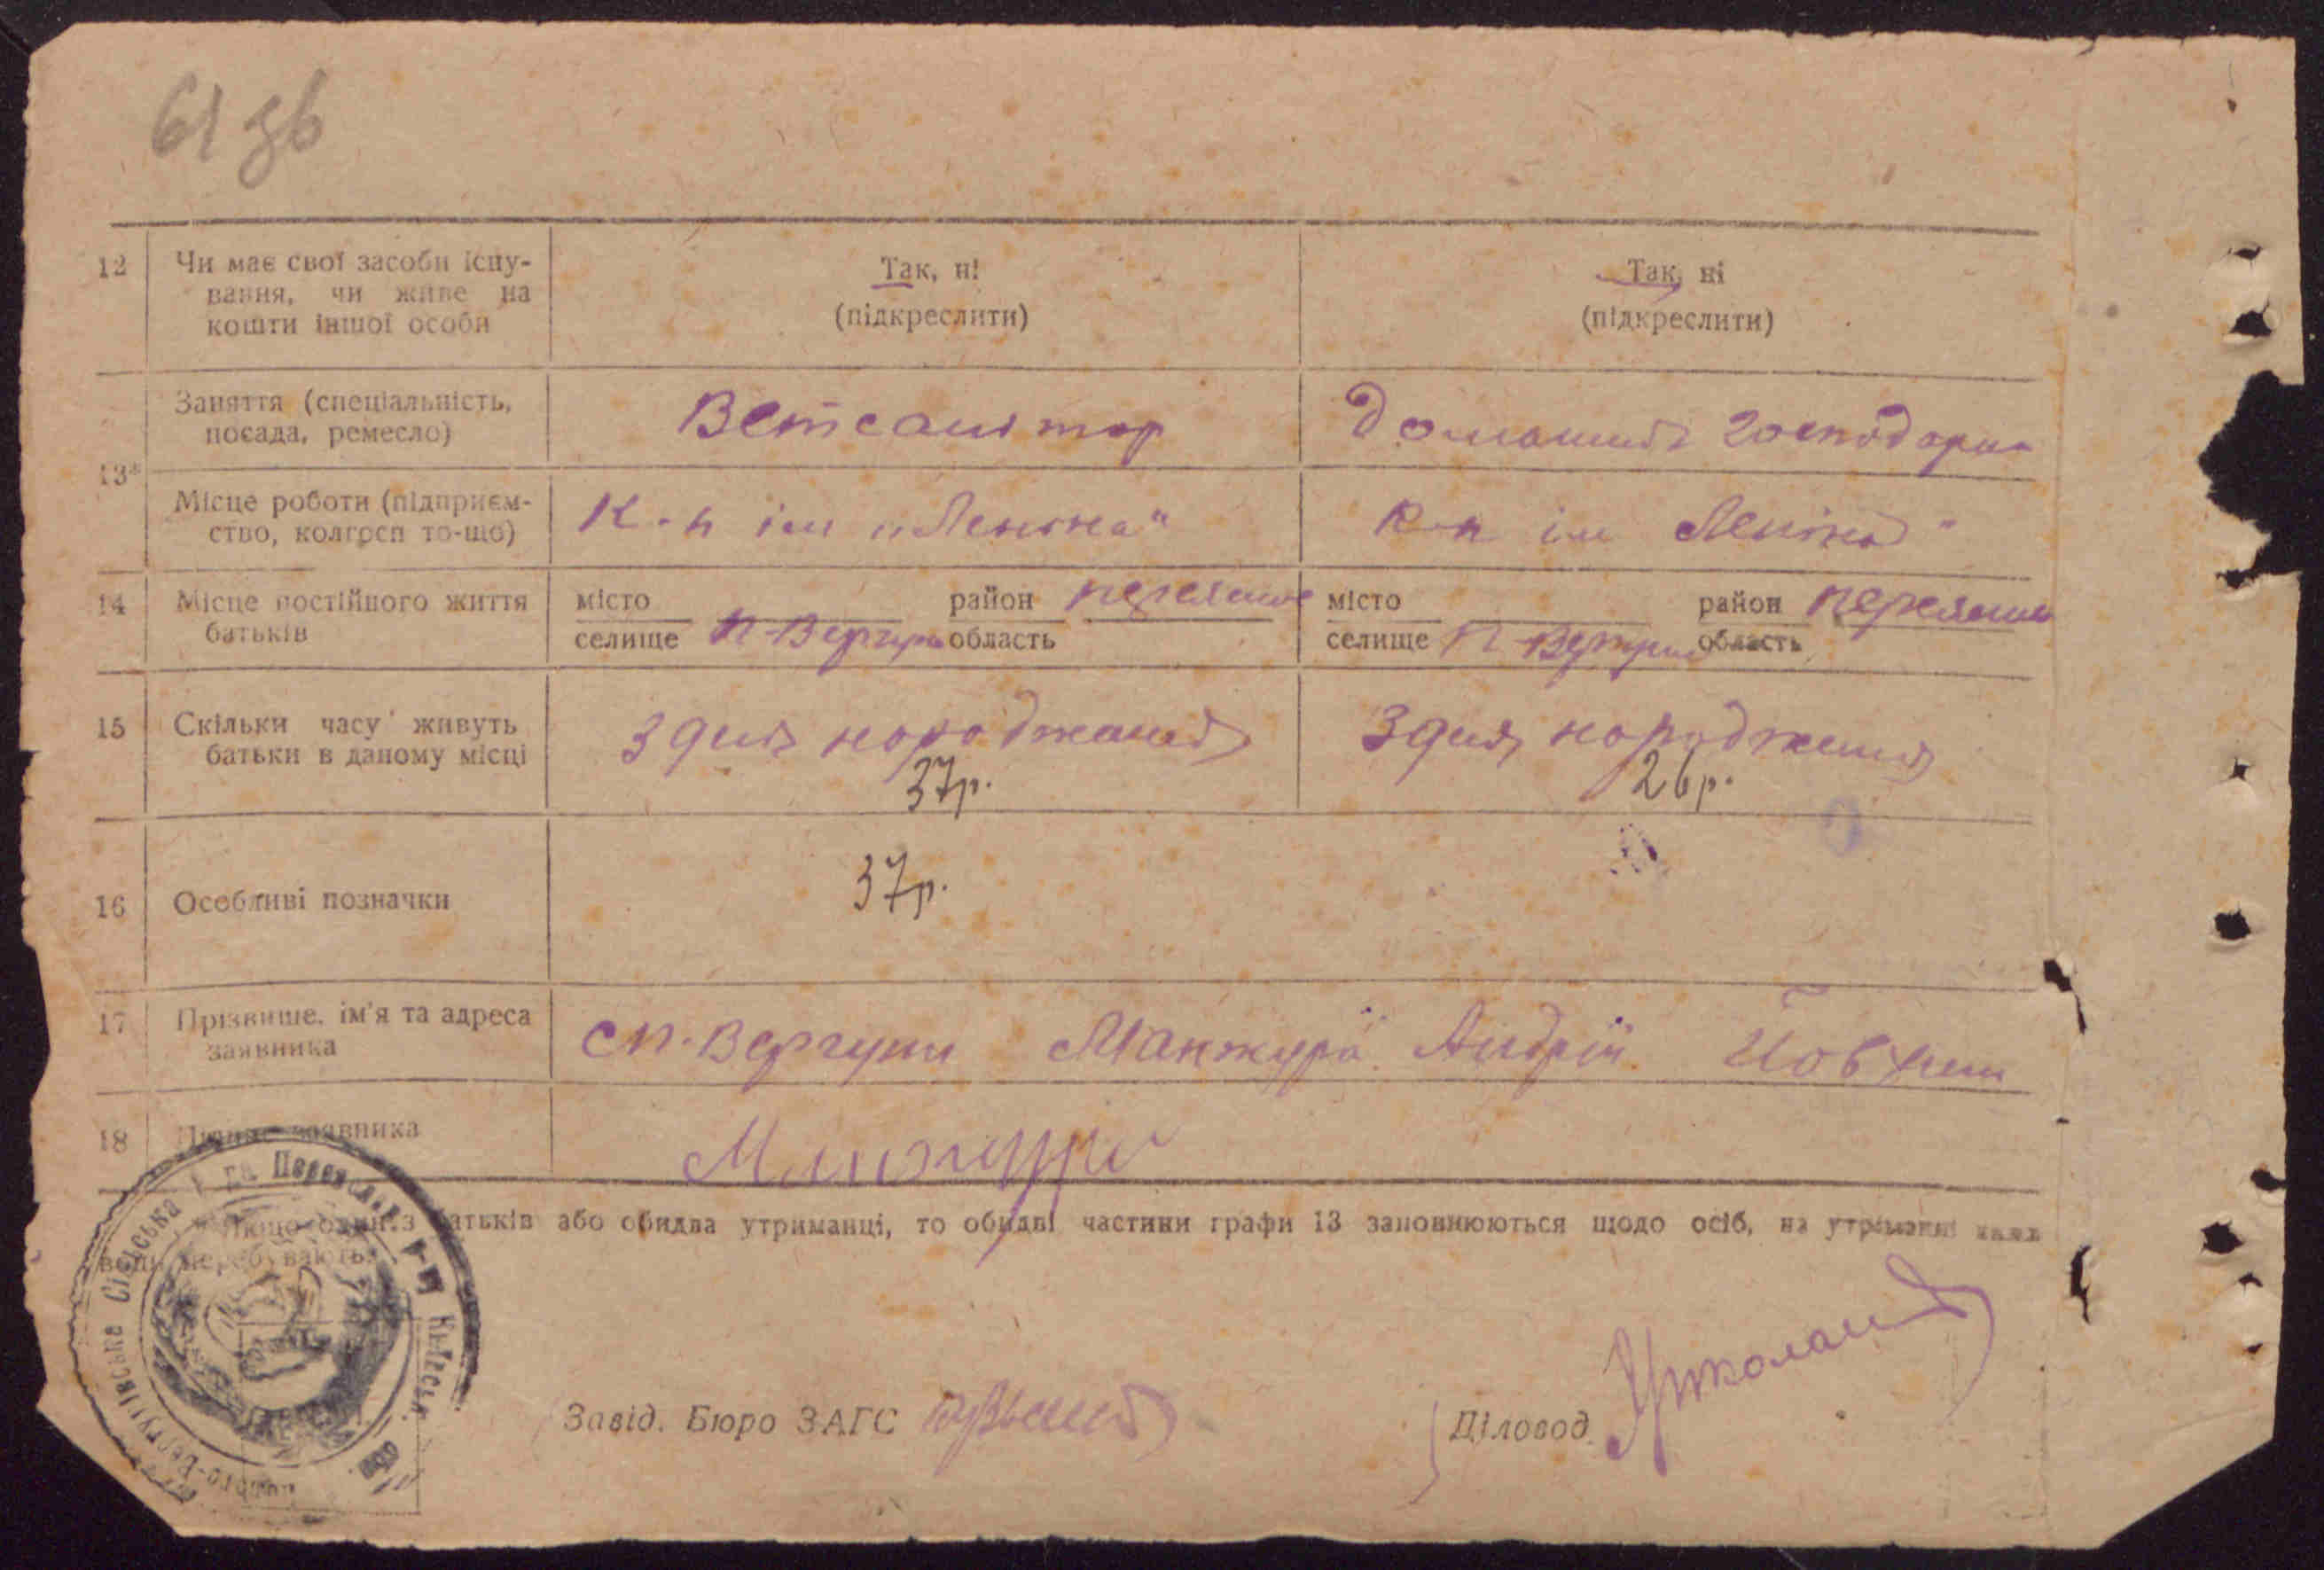 61 зв
12 Чи має свої засоби існу-
вання, чи живе на
кошти іншої особи
Так, ні
(підкреслити)
Так, ні
(підкреслити)
13*
Заняття (спеціальність,
посада, ремесло)
Ветсанітор
Місце роботи (підприєм-
ство, колгосп то-що)
К-п ім „Леніна"
К-п ім Леніна"
14 Місце постійного життя
батьків
місто
селище
район
область
місто
селище
район
область
15 Скільки часу живуть
батьки в даному місці
З дня народження
37р.
З дня народження
26р.
16 Особливі позначки
37р.
17 Прізвище, ім'я та адреса
заявника
Манжура Андрій
18 Підпис заявника
Манжура
* Якщо один з батьків або обидва утриманці, то обидві частини графи 13 заповнюються щодо осіб, на утриманні яких
вони перебувають.
Завід. Бюро ЗАГС
Діловод